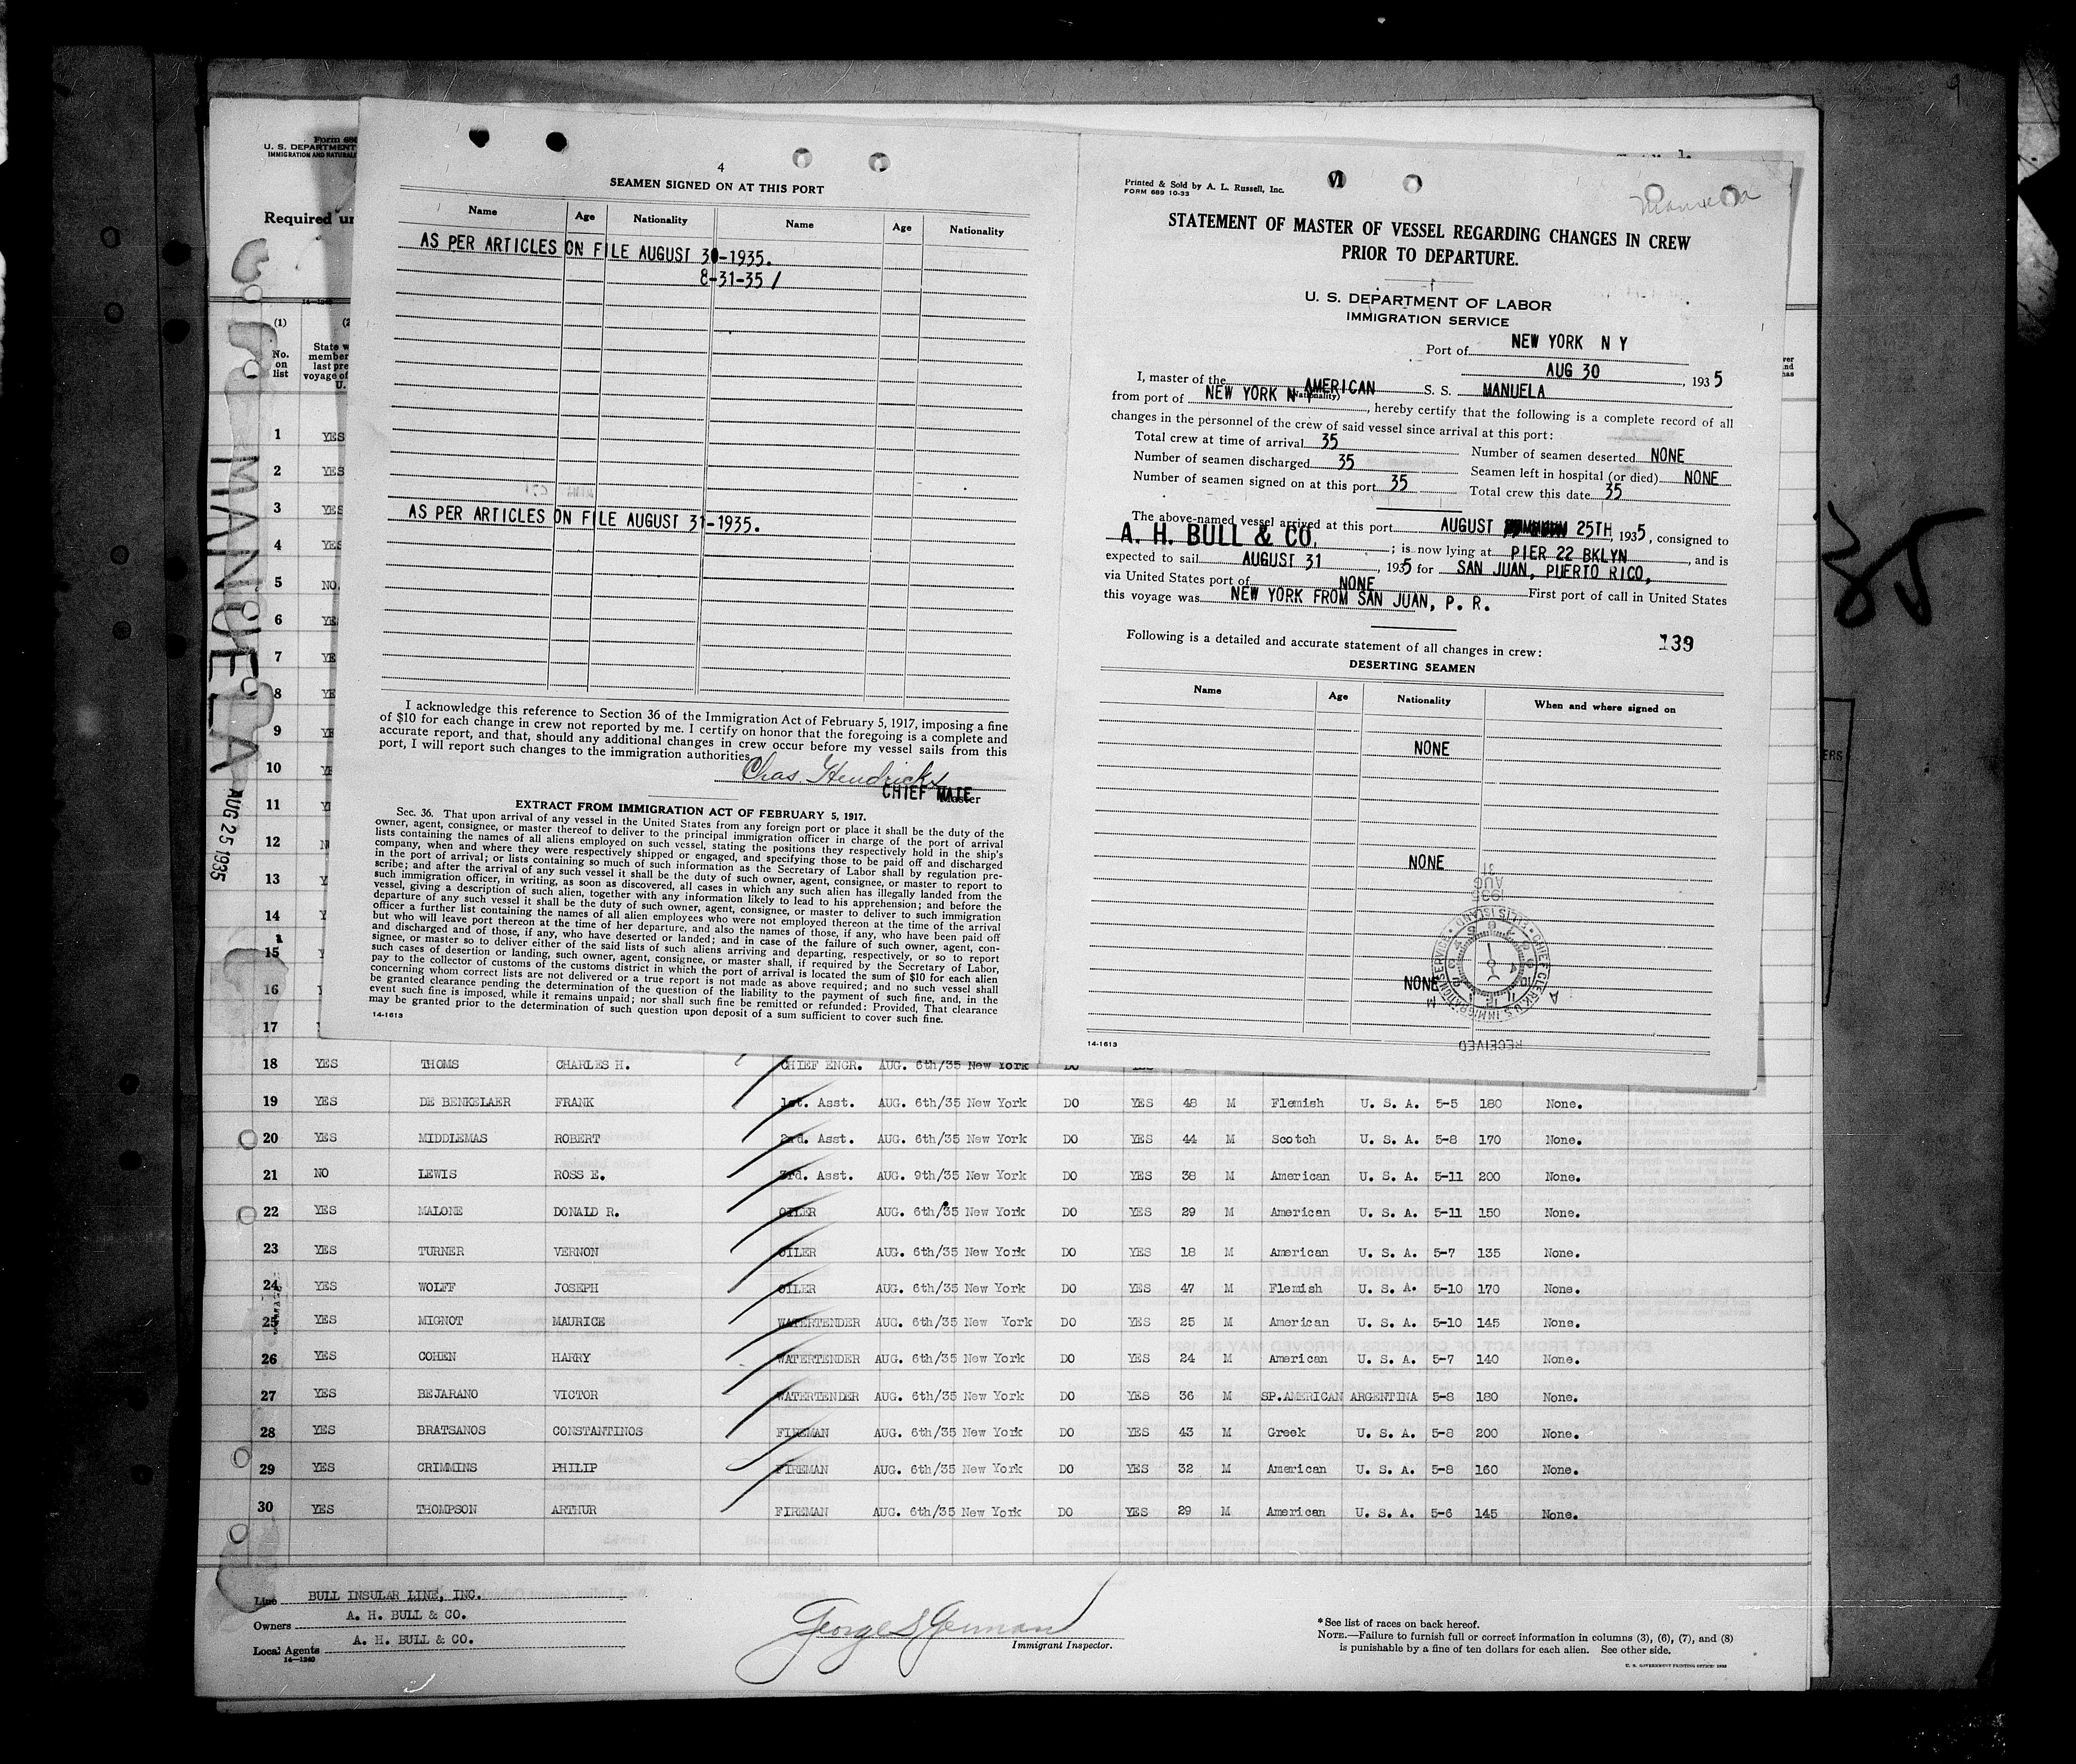 4
SEAMEN SIGNED ON AT THIS PORT
Name Age Nationality Name Age Nationality
AS PER ARTICLES ON FILE AUGUST 30-1935.
8-31-35 /
AS PER ARTICLES ON FILE AUGUST 31-1935.
I acknowledge this reference to Section 36 of the Immigration Act of February 5, 1917, imposing a fine
of $10 for each change in crew not reported by me. I certify on honor that the foregoing is a complete and
accurate report, and that, should any additional changes in crew occur before my vessel sails from this
port, I will report such changes to the immigration authorities.
Chas. Hendricks
CHIEF MATE
Master
EXTRACT FROM IMMIGRATION ACT OF FEBRUARY 5, 1917.
Sec. 36. That upon arrival of any vessel in the United States from any foreign port or place it shall be the duty of the
owner, agent, consignee, or master thereof to deliver to the principal immigration officer in charge of the port of arrival
lists containing the names of all aliens employed on such vessel, stating the positions they respectively hold in the ship's
company, when and where they were respectively shipped or engaged, and specifying those to be paid off and discharged
in the port of arrival; or lists containing so much of such information as the Secretary of Labor shall by regulation pre-
scribe; and after the arrival of any such vessel it shall be the duty of such owner, agent, consignee, or master to report to
such immigration officer, in writing, as soon as discovered, all cases in which any such alien has illegally landed from the
vessel, giving a description of such alien, together with any information likely to lead to his apprehension; and before the
departure of any such vessel it shall be the duty of such owner, agent, consignee, or master to deliver to such immigration
officer a further list containing the names of all alien employees who were not employed thereon at the time of the arrival
but who will leave port thereon at the time of her departure, and also the names of those, if any, who have been paid off
and discharged and of those, if any, who have deserted or landed; and in case of the failure of such owner, agent, con-
signee, or master so to deliver either of the said lists of such aliens arriving and departing, respectively, or so to report
such cases of desertion or landing, such owner, agent, consignee, or master shall, if required by the Secretary of Labor,
pay to the collector of customs of the customs district in which the port of arrival is located the sum of $10 for each alien
concerning whom correct lists are not delivered or a true report is not made as above required; and no such vessel shall
be granted clearance pending the determination of the question of the liability to the payment of such fine, and, in the
event such fine is imposed, while it remains unpaid; nor shall such fine be remitted or refunded: Provided, That clearance
may be granted prior to the determination of such question upon deposit of a sum sufficient to cover such fine.
14-1613
Printed & Sold by A. L. Russell, Inc.
FORM 689 10-33
VI
Manuela
STATEMENT OF MASTER OF VESSEL REGARDING CHANGES IN CREW
PRIOR TO DEPARTURE.
U. S. DEPARTMENT OF LABOR
IMMIGRATION SERVICE
Port of NEW YORK N Y
AUG 30, 1935
I, master of the AMERICAN S. S. MANUELA
(Nationality)
from port of NEW YORK N Y, hereby certify that the following is a complete record of all
changes in the personnel of the crew of said vessel since arrival at this port:
Total crew at time of arrival 35 Number of seamen deserted NONE
Number of seamen discharged 35 Seamen left in hospital (or died) NONE
Number of seamen signed on at this port 35 Total crew this date 35
The above-named vessel arrived at this port AUGUST 25TH, 1935, consigned to
A. H. BULL & CO, ; is now lying at PIER 22 BKLYN, and is
expected to sail AUGUST 31, 1935 for SAN JUAN, PUERTO RICO,
via United States port of NONE First port of call in United States
this voyage was NEW YORK FROM SAN JUAN, P. R.
139
Following is a detailed and accurate statement of all changes in crew:
DESERTING SEAMEN
Name Age Nationality When and where signed on
NONE
NONE
NONE
RECEIVED
CHIEF CLERK U.S. IMMIGRATION SERVICE ELLIS ISLAND
AUG 31 1935
14-1613
Form 680
U. S. DEPARTMENT
IMMIGRATION AND NATURAL
Required un
MANUELA
AUG 25 1935
35
(1)
No. on list
1 YES
2 YES
3 YES
4 YES
5 NO
6 YE
7 YE
8 YE
9 YE
10 YE
11 Y
12 N
13 Y
14 Y
15 Y
16
17
18 YES THOMS CHARLES H. CHIEF ENGR. AUG. 6th/35 New York DO
19 YES DE BENKELAER FRANK 1st. Asst. AUG. 6th/35 New York DO YES 48 M Flemish U. S. A. 5-5 180 None.
20 YES MIDDLEMAS ROBERT 2rd. Asst. AUG. 6th/35 New York DO YES 44 M Scotch U. S. A. 5-8 170 None.
21 NO LEWIS ROSS E. 3rd. Asst. AUG. 9th/35 New York DO YES 38 M American U. S. A. 5-11 200 None.
22 YES MALONE DONALD R. OILER AUG. 6th/35 New York DO YES 29 M American U. S. A. 5-11 150 None.
23 YES TURNER VERNON OILER AUG. 6th/35 New York DO YES 18 M American U. S. A. 5-7 135 None.
24 YES WOLFF JOSEPH OILER AUG. 6th/35 New York DO YES 47 M Flemish U. S. A. 5-10 170 None.
25 YES MIGNOT MAURICE WATERTENDER AUG. 6th/35 New York DO YES 25 M American U. S. A. 5-10 145 None.
26 YES COHEN HARRY WATERTENDER AUG. 6th/35 New York DO YES 24 M American U. S. A. 5-7 140 None.
27 YES BEJARANO VICTOR WATERTENDER AUG. 6th/35 New York DO YES 36 M SP.AMERICAN ARGENTINA 5-8 180 None.
28 YES BRATSANOS CONSTANTINOS FIREMAN AUG. 6th/35 New York DO YES 43 M Greek U. S. A. 5-8 200 None.
29 YES CRIMMINS PHILIP FIREMAN AUG. 6th/35 New York DO YES 32 M American U. S. A. 5-8 160 None.
30 YES THOMPSON ARTHUR FIREMAN AUG. 6th/35 New York DO YES 29 M American U. S. A. 5-6 145 None.
Line BULL INSULAR LINE, INC.
Owners A. H. BULL & CO.
Local Agents A. H. BULL & CO.
14-1240
Immigrant Inspector.
*See list of races on back hereof.
NOTE.—Failure to furnish full or correct information in columns (3), (6), (7), and (8)
is punishable by a fine of ten dollars for each alien. See other side.